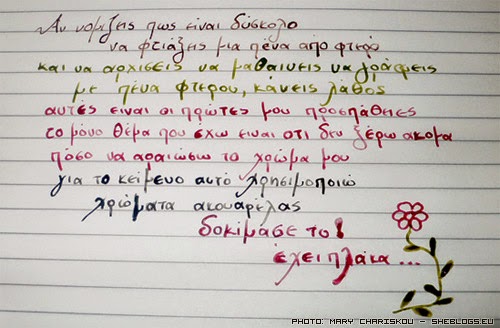 Αν νομιζης πως ειναι δύσκολο
να φτιάξης μια πένα απο φτερό
και να αρχισεις να μαθαινεις να γράφεις
με πένα φτερου, κάνεις λάθος
αυτές ειναι οι πρώτες μου προσπάθηες
το μόνο θέμα που έχω ειναι οτι δεν ξέρω ακομα
πόσο να αραιώσω το χρώμα μου
για το κείμενο αυτό χρησιμοποιώ
χρώματα ακουαρέλας
δοκίμασε το!
έχει πλάκα ...
PHOTO: MARY CHARISKOU - SHEBLOGS.EU